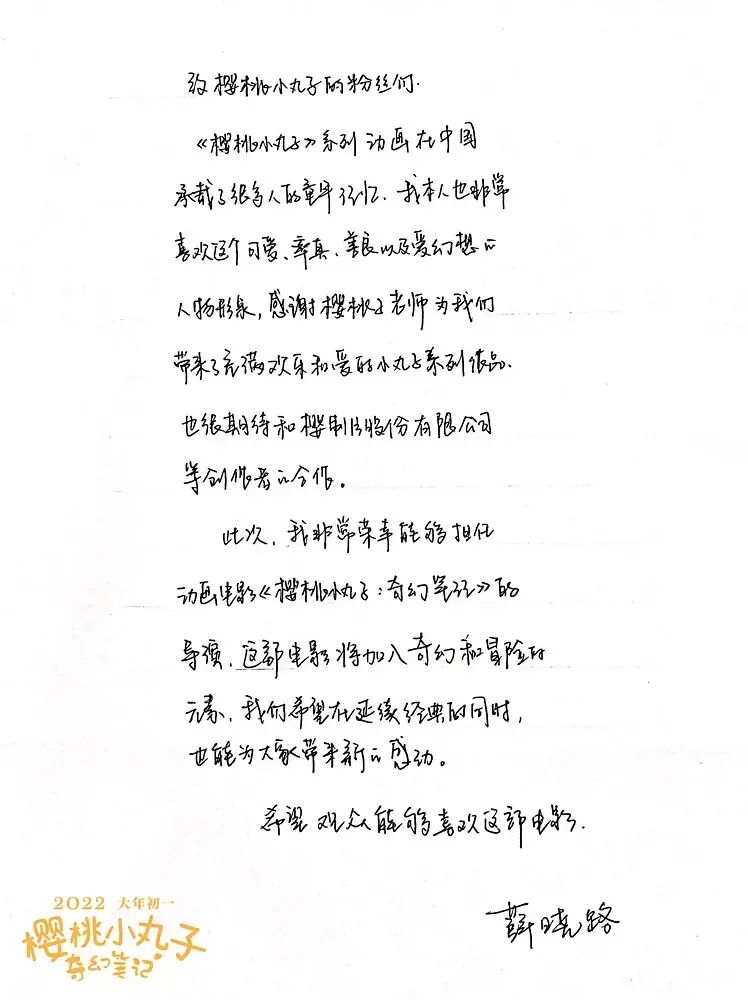 致樱桃小丸子的粉丝们.
《樱桃小丸子》系列动画在中国
承载了很多人的童年记忆. 我本人也非常
喜欢这个可爱、率真、善良以及爱幻想的
人物形象, 感谢樱桃子老师为我们
带来了充满欢乐和爱的小丸子系列作品.
也很期待和樱制片股份有限公司
等创作者的合作。
此次, 我非常荣幸能够担任
动画电影《樱桃小丸子:奇幻笔记》的
导演. 这部电影将加入奇幻和冒险的
元素. 我们希望在延续经典的同时,
也能为大家带来新的感动。
希望观众能够喜欢这部电影.
薛晓路
2022 大年初一
樱桃小丸子
奇幻笔记